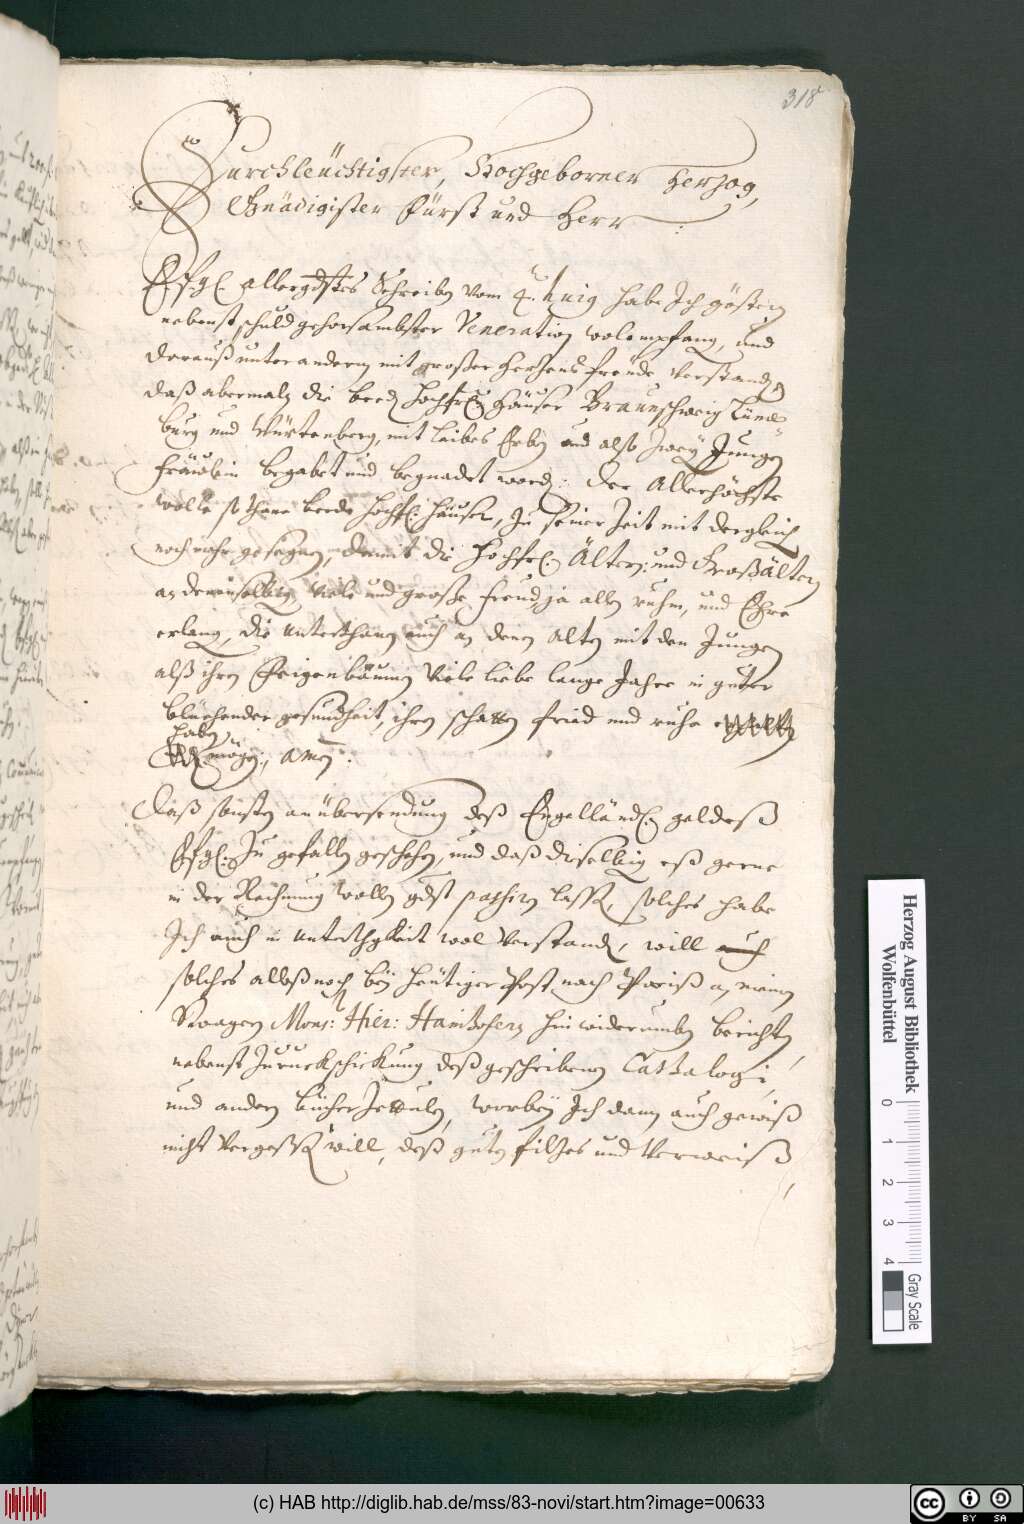 318
Durchleüchtigster, Hochgeborner Herzog,
Gnädigister Fürst und Herr
Efgl. allergdstes Schreiben vom 4. huig habe Ich gestern
nebenst schuldgehorsambster Veneration wol empfang, und
darauß unter andern mit großer herzens freüde verstanden
daß abermaln die beed hochfrl. Häuser Braunschweig Lüne-
burg und Würtenberg, mit leibes Erben und alß zwey Jungen
fräwlein begabet und begnadet word: der Allerhöchste
wolle sothane beede hochfl. häuser, zu seiner zeit mit dergleich
noch mehr gesegnen, damit die hochfrl. Ältern: und Großältern
an denenselbig viele und große freud, ja allen ruhm, und Ehre
erlang, die unterthanen auch an denen alten mit den Jungen
alß ihren Feigenbäumen viele liebe lange Jahre in guter
blüehender gesundheit, ihren schatten fried und ruhe
haben
mögen, amen:
Daß sonsten an übersendung deß Engelländ. geldeß
Efgl. zu gefallen geschehen, und daß dieselbig eß gerne
in der Rechnung wollen gdst passiren lassen, solches habe
Ich auch in unterthgkeit wol verstand, will auch
solches alleß noch bey heütiger Post nach Pariß an meinen
Swagern Mons: Hier: Hainhofern hinwiderumben berichten,
nebenst zuruckschickung deß geschribenen Cathalogi,
und andern bücher zettuln, worbey Ich dann auch gewiß
nicht vergessen will, deß guten filzes und verweiß
Herzog August Bibliothek
Wolfenbüttel
0 1 2 3 4
Gray Scale
(c) HAB http://diglib.hab.de/mss/83-novi/start.htm?image=00633
cc BY SA